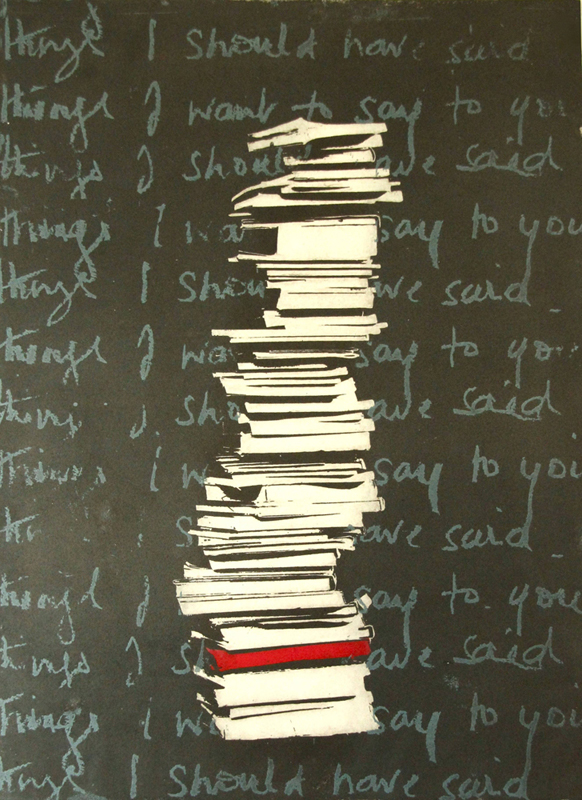 things I should have said
things I want to say to you
things I should have said
things I wa say to you
things I shou ve said
things I wa say to yo
things I sho ave said
things I w say to you
thi s have said
things I say to you
things I sh ave said
things I wa say to you
things I should have said